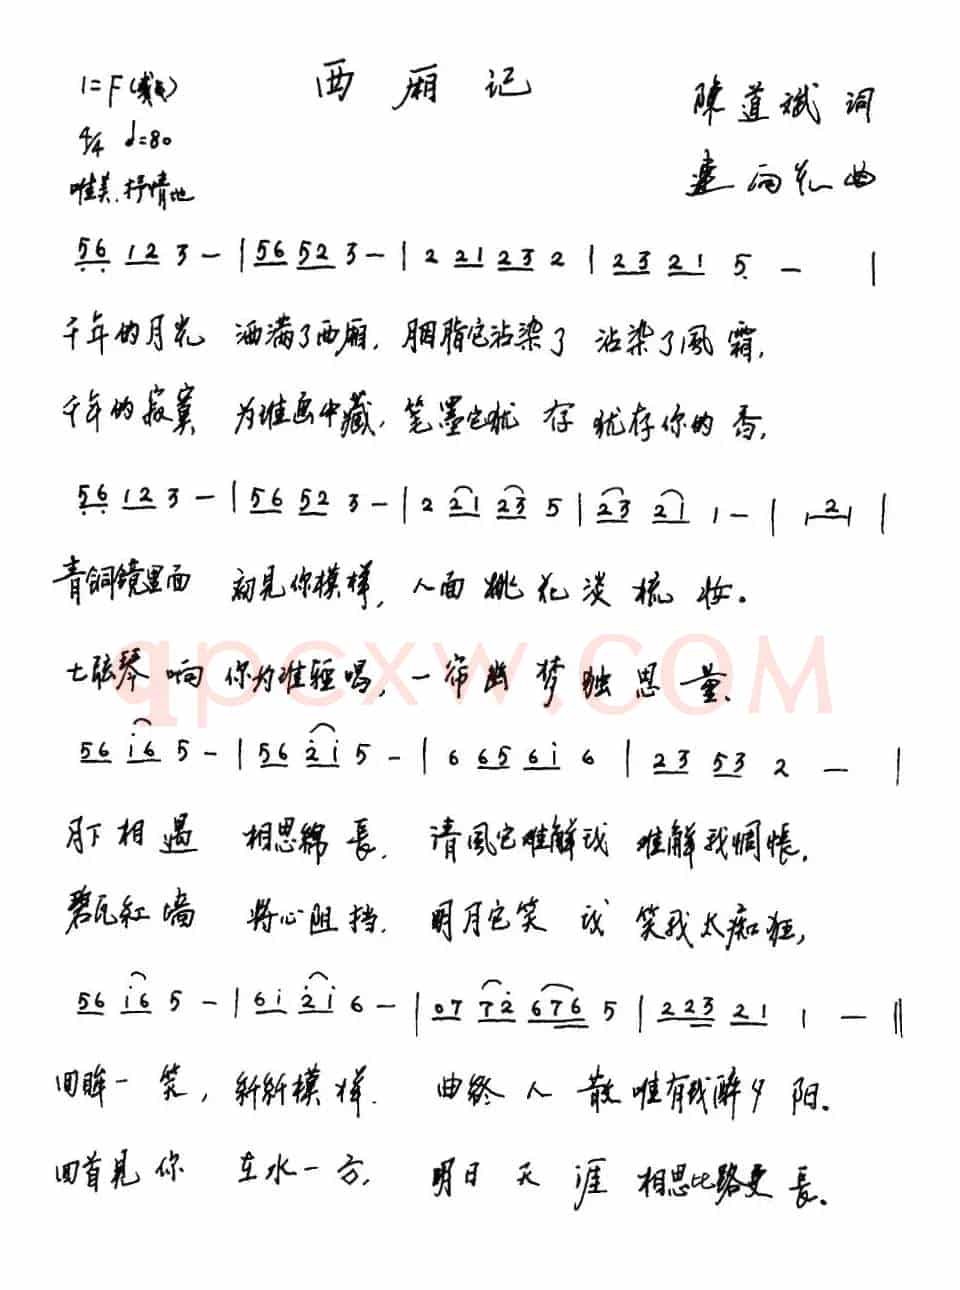 西厢记
1=F
4/4 ♩=80
唯美、抒情地
陳道斌 词
曲
56 12 3 - | 56 52 3 - | 2 21 23 2 | 23 21 5 - |
千年的月光 洒满了西厢，胭脂它沾染了 沾染了風霜，
千年的寂寞 为谁画中藏，笔墨它犹存 犹存你的香，
56 12 3 - | 56 52 3 - | 2 21 23 5 | 23 21 1 - | 2 |
青銅鏡里面 初見你模樣，人面桃花淡梳妆。
七弦琴响 你为谁轻唱，一帘幽梦独思量、
qpcxw.COM
56 i6 5 - | 56 2i 5 - | 6 65 6i 6 | 23 53 2 - |
月下相遇 相思綿長，清風它难解我 难解我惆怅，
碧瓦紅墙 将心阻挡，明月它笑我 笑我太痴狂，
56 i6 5 - | 6i 2i 6 - | 07 72 676 5 | 223 21 1 - ||
回眸一笑，新新模样，曲终人散 唯有我醉夕阳。
回首見你 在水一方，明日天涯 相思比路更長。